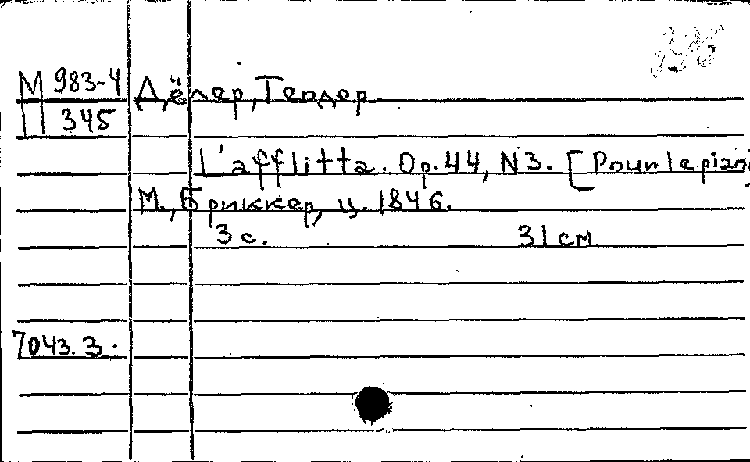 М 983-4
345
Дёлер, Теодор
L'afflitta. Op. 44, N3. [Pour le piano
М., Бриккер, ц. 1846.
3 с. 31 см
7043.3.